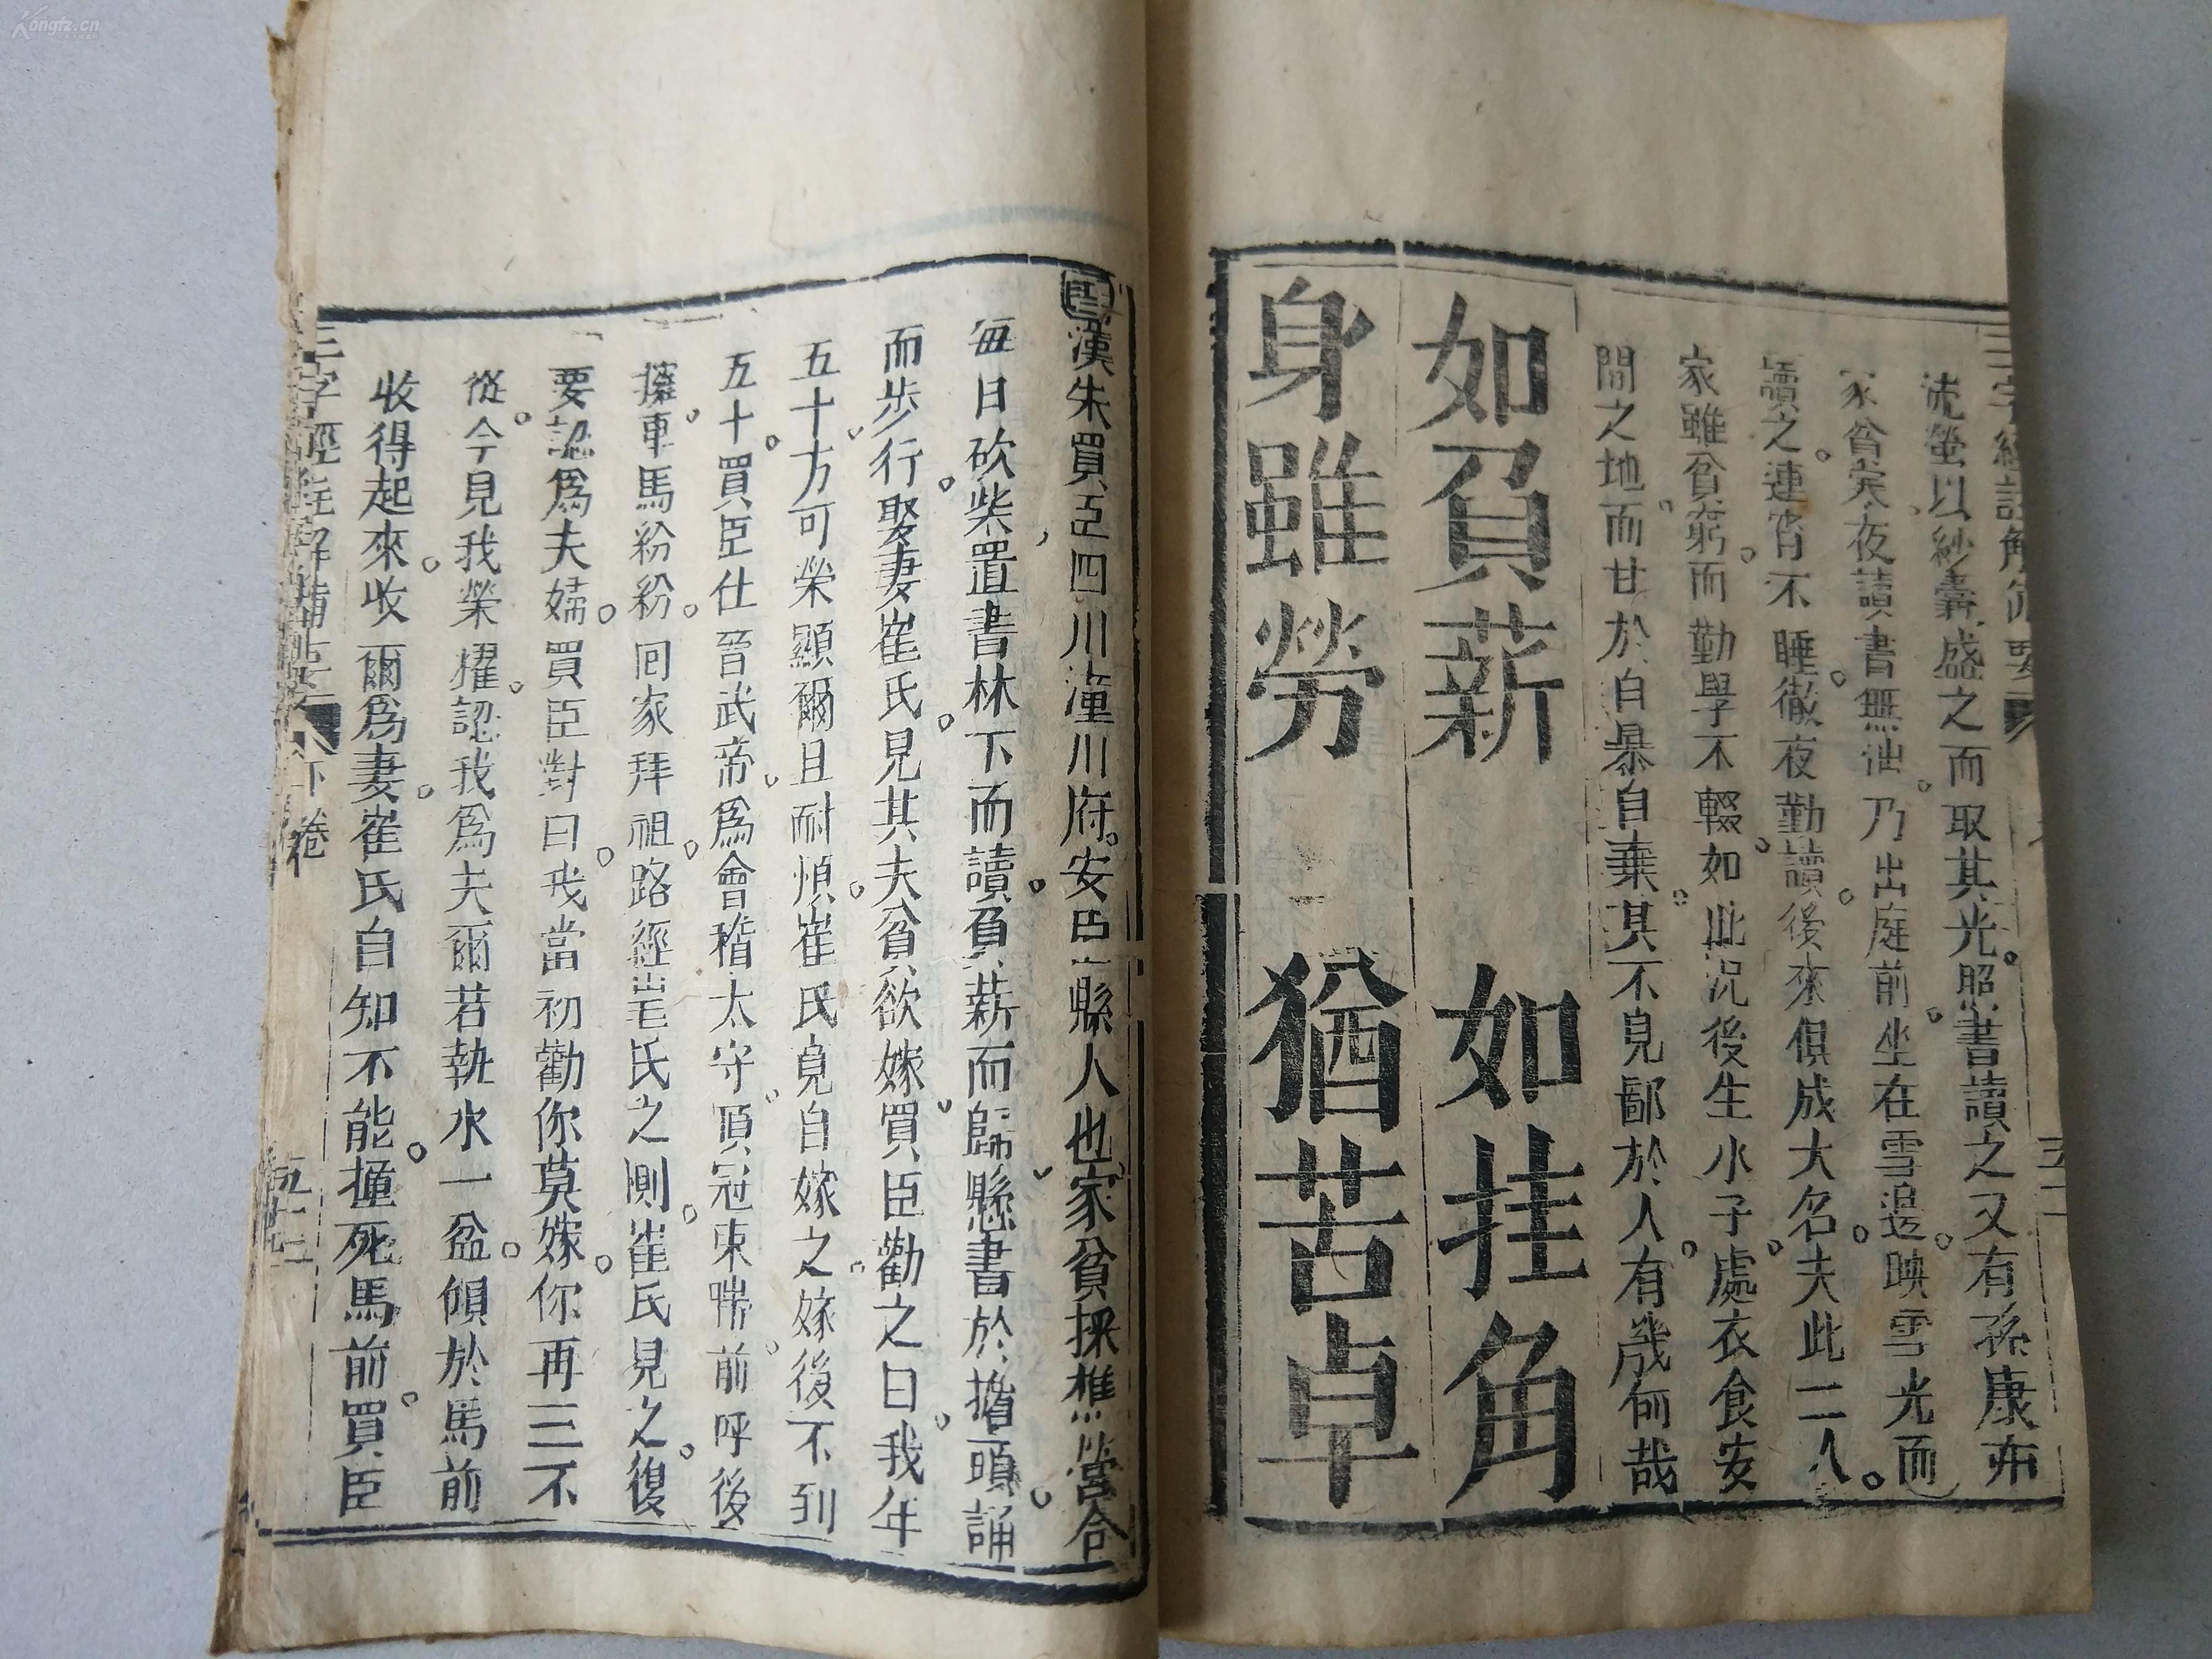 三字經註解備要
流螢以紗囊盛之而取其光照書讀之又有孫康亦
家貧夜讀書無油乃出庭前坐在雪邊映雪光而
讀之連宵不睡徹夜勤讀後來俱成大名夫此二人
家雖貧窮而勤學不輟如此況後生小子處衣食安
閒之地而甘於自暴自棄其不見鄙於人有幾何哉
如負薪 如挂角
身雖勞 猶苦卓
漢朱買臣四川潼川府安岳縣人也家貧採樵營合
每日砍柴置書林下而讀負薪而歸懸書於擔頭誦
而步行娶妻崔氏見其夫貧欲嫁買臣勸之曰我年
五十方可榮顯爾且耐煩崔氏竟自嫁之嫁後不到
五十買臣仕晉武帝為會稽太守頂冠束帶前呼後
擁車馬紛紛回家拜祖路經宅氏之側崔氏見之復
要認為夫婦買臣對曰我當初勸你莫嫁你再三不
從今見我榮耀認我為夫爾若執水一盆傾於馬前
收得起來收爾為妻崔氏自知不能撞死馬前買臣
三字經註解備要 下卷 五十二
Kongfz.cn